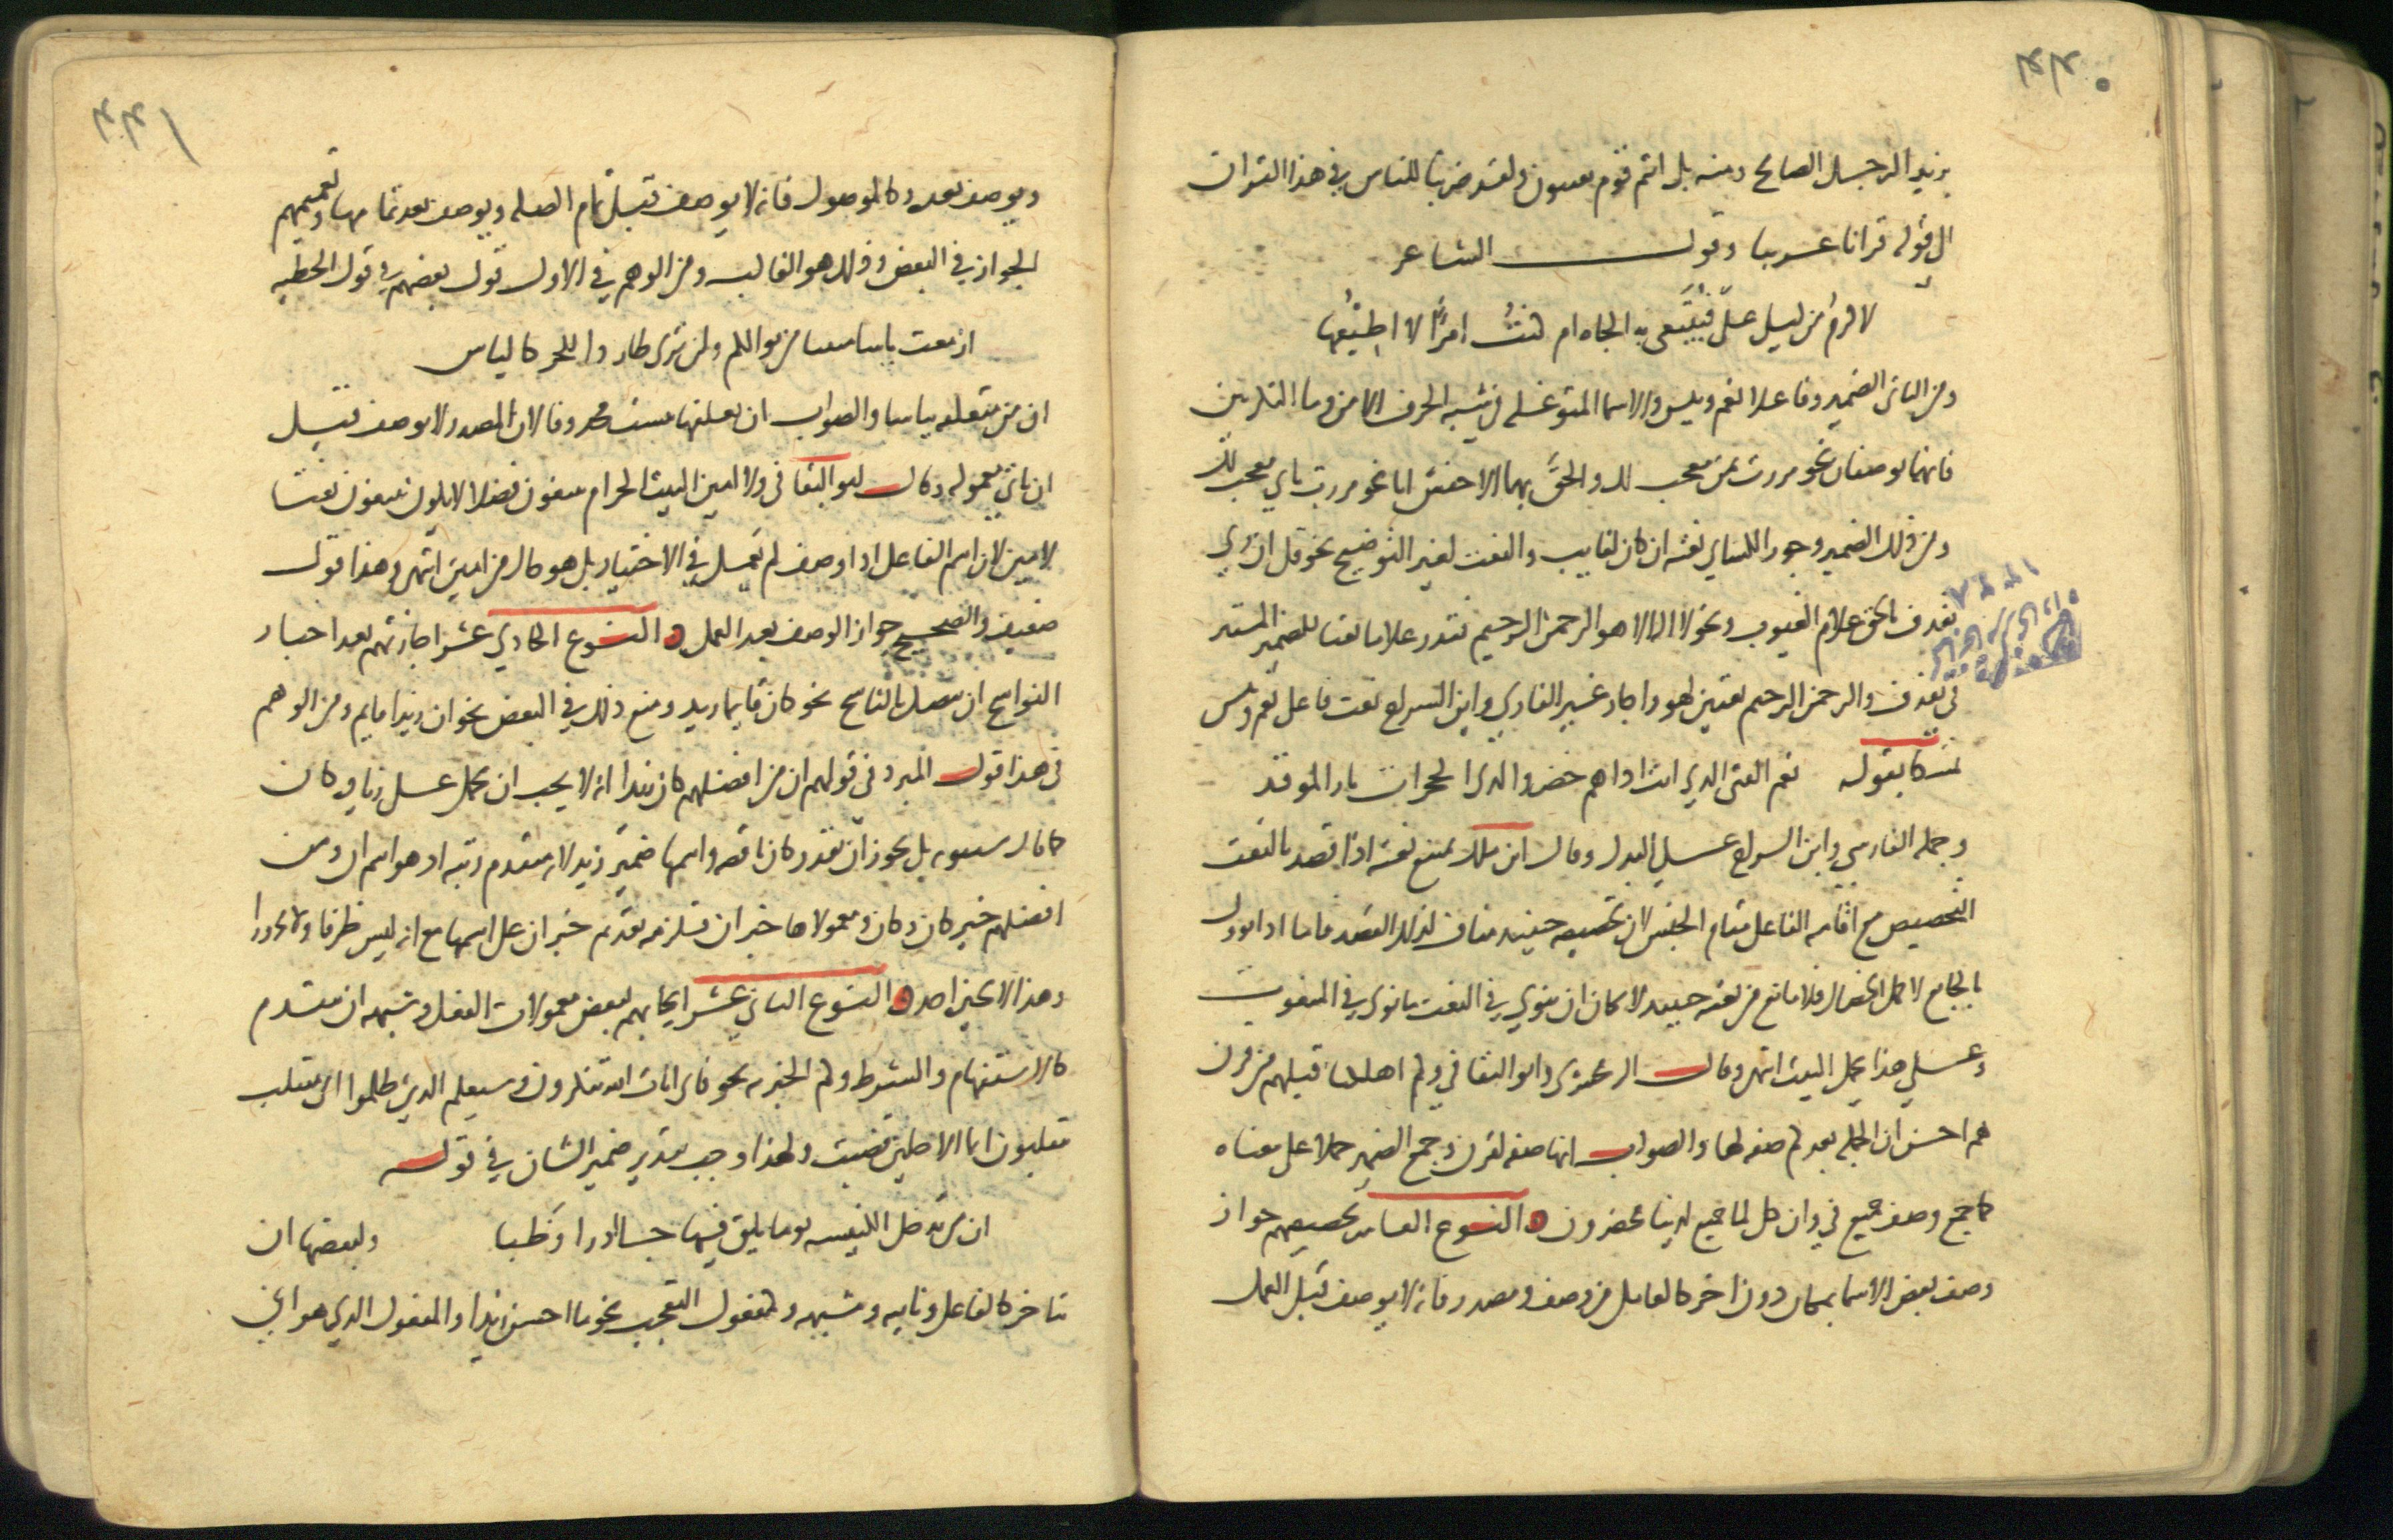 بزيد الرجل الصالح ومنه بل انتم قوم تفتنون ولقد ضربنا للناس في هذا القران
الى قوله قرانا عربيا وقول الشاعر
لاكرم من ليلى علي فتبتغى به الجاه ام كنت امرأ لا اطيعها
ومن الثاني الضمير وفاعلا نعم وبيس والاسما المتوغله في شبه الحرف الا من وما النكرتين
فانهما يوصفان نحو مررت بمن معجب لك والحق بهما الاخفش ايا نحو مررت باي معجب لك
ومن ذلك الضمير وجوز الكساي نعته ان كان لغايب والنعت لغير التوضيح نحو قل ان ربي
يقذف بالحق علام الغيوب ونحو لا اله الا هو الرحمن الرحيم فقدر علاما نعتا للضمير المستتر
في يقذف والرحمن الرحيم نعتين لهو واجاز غير الفارسي وابن السراج نعت فاعل نعم وبيس
تمسكا بقوله نعم الفتى الذي انت اذا هم حضروا لدى الحجرات نار الموقد
وحمله الفارسي وابن السراج على البدل وقال ابن ملك يمتنع نعته اذا قصد بالنعت
التخصيص مع اقامه الفاعل مقام الجنس لان تخصيصه حينيذ مناف لذلك القصد فاما اذا توول
بالجامع لاكمل الخصال فلا مانع من نعته حينيذ لامكان ان ينوي في النعت ما نوي في المنعوت
وعلى هذا يحمل البيت انتهى وقال الزمخشري وابو البقا في وكم اهلكنا قبلهم من قرن
هم احسن ان الجملة بعد كم صفه لها والصواب انها صفه لقرن وجمع الضمير حملا على معناه
كما جمع وصف جميع في وان كل لما جميع لدينا محضرون النوع العاشر تخصيصهم جواز
وصف بعض الاسما بمكان دون اخر كالعامل من وصف ومصدر فانه لا يوصف قبل العمل
ويوصف بعده وكالموصول فانه لا يوصف قبل تمام الصله ويوصف بعد تمامها وتعميمهم
الجواز في البعض وذلك هو الغالب ومن الوهم في الاول قول بعضهم في قول الحطيه
ازمعت ياسا مبينا من نوالكم ولن ترى طاردا للحر كالياس
ان من متعلقه بياسا والصواب ان تعلقها بيست محذوفا لان المصدر لا يوصف قبل
ان ياتي معموله وقال ابو البقا في ولا امين البيت الحرام يبتغون فضلا لا يكون يبتغون نعتا
لامين لان اسم الفاعل اذا وصف لم يعمل في الاختيار بل هو حال من امين انتهى وهذا قول
ضعيف والصحيح جواز الوصف بعد العمل النوع الحادي عشر اجازتهم بعد اخبار
النواسخ ان يتصل بالناسخ نحو كان قايما زيد ومنع ذلك في البعض نحو ان زيدا قايم ومن الوهم
في هذا قول المبرد في قولهم ان من افضلهم كان زيدا انه لا يجب ان يحمل على زياده كان
كما قال سيبويه بل يجوز ان تقدر كان ناقصه واسمها ضمير زيد لانه متقدم رتبه اذ هو اسم ان ومن
افضلهم خبر كان وكان ومعمولاها خبر ان فلزمه تقديم خبر ان على اسمها مع انه ليس ظرفا ولا مجرورا
وهذا لا يجيزه احد النوع الثاني عشر ايجابهم لبعض معمولات الفعل وشبهه ان يتقدم
كالاستفهام والشرط وكم الخبريه نحو فاى ايات الله تنكرون وسيعلم الذين ظلموا اى منقلب
ينقلبون ايما الاجلين قضيت ولهذا وجب تقدير ضمير الشان في قوله
ان من يدخل الكنيسه يوما يلق فيها جاذرا وظبا ولبعضها ان
يتاخر كالفاعل ونايبه ومشبهه وكمفعول التعجب نحو ما احسن زيدا والمفعول الذي هو اي